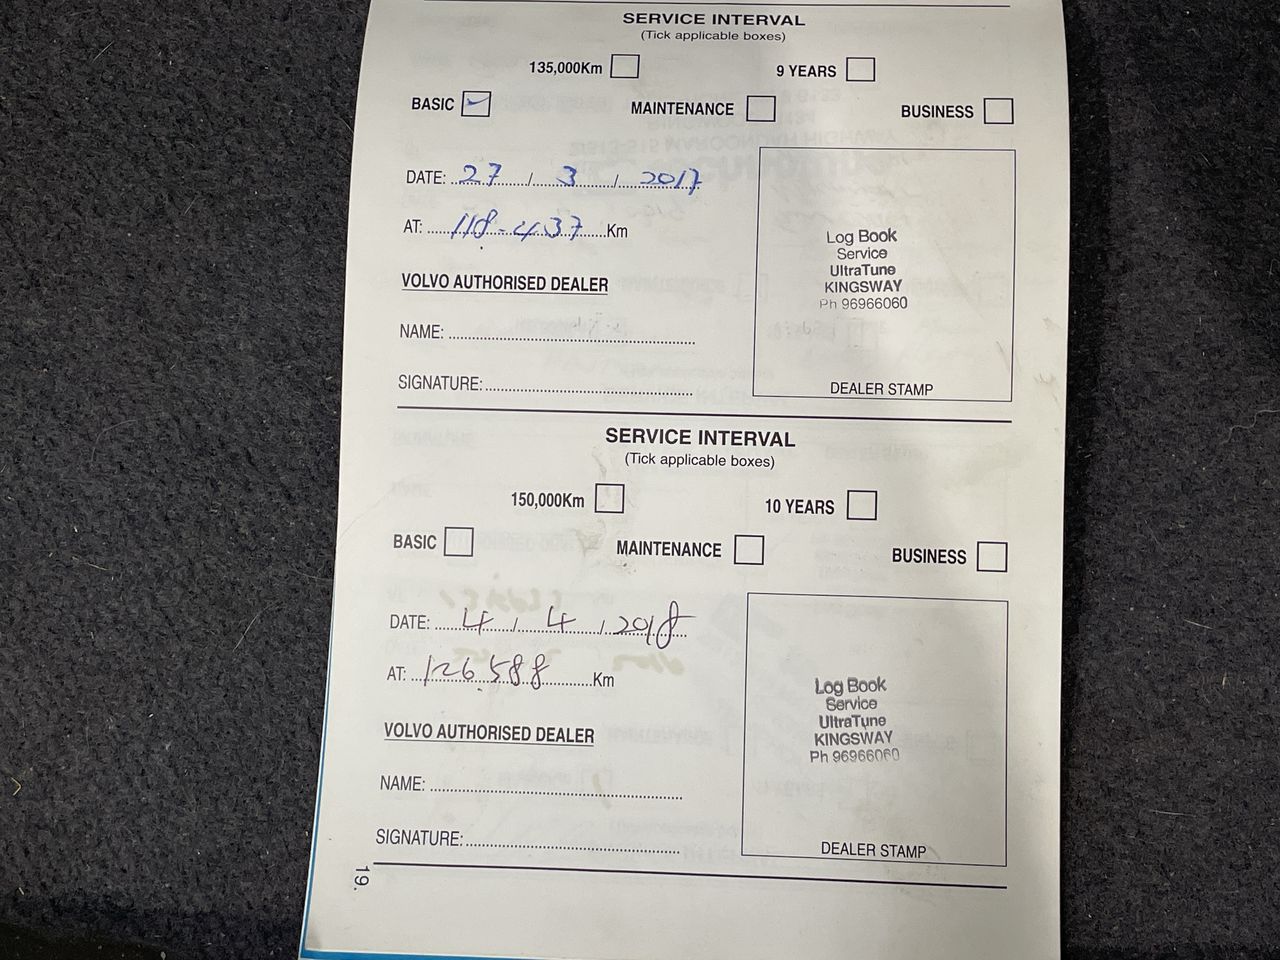 SERVICE INTERVAL
(Tick applicable boxes)
135,000Km 9 YEARS
BASIC MAINTENANCE BUSINESS
DATE: 27 / 3 / 2017
AT: 118-437 Km
VOLVO AUTHORISED DEALER
NAME:
SIGNATURE:
Log Book
Service
UltraTune
KINGSWAY
Ph 96966060
DEALER STAMP
SERVICE INTERVAL
(Tick applicable boxes)
150,000Km 10 YEARS
BASIC MAINTENANCE BUSINESS
DATE: 4 / 4 / 2018
AT: 126588 Km
VOLVO AUTHORISED DEALER
NAME:
SIGNATURE:
Log Book
Service
UltraTune
KINGSWAY
Ph 96966060
DEALER STAMP
19.